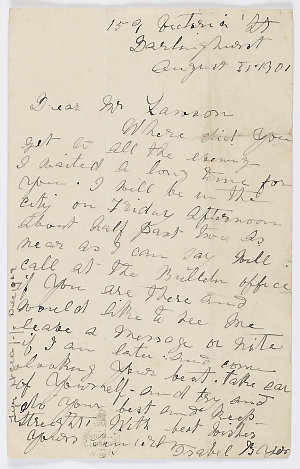 159 Victoria St
Darlinghurst
August 31-1901
Dear Mr Lawson
Where did you
get to all the evening
I waited a long time for
you. I will be in the
city on Friday afternoon
about half past two as
near as I can say will
call at the Bulletin office
if you are there and
would like to see me
leave a message or note
if I am later and come
looking your best. Take care
of yourself and try and
do your best and keep
straight. With best wishes
Yours sincerely
Isabel Byers